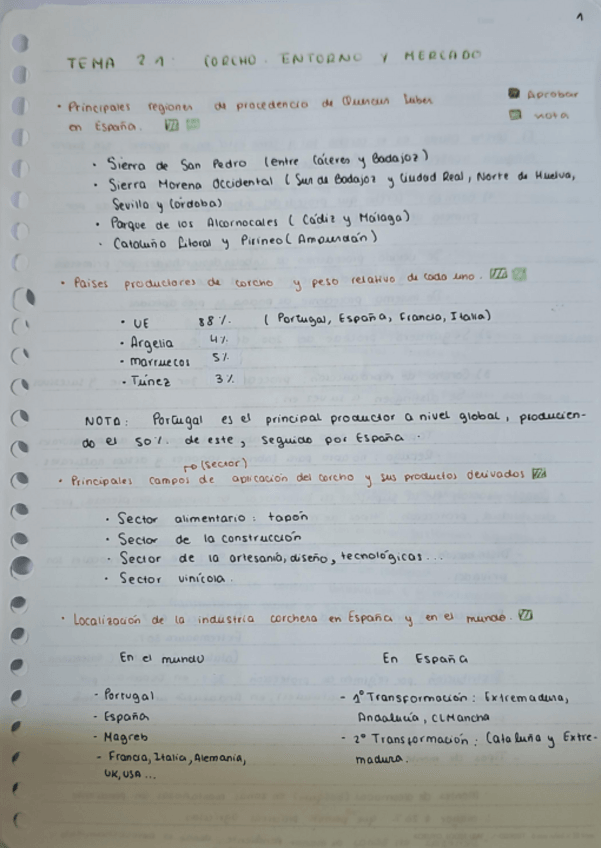 1
TEMA 21. CORCHO. ENTORNO Y MERCADO
Aprobar
nota
· Principales regiones de procedencia de Quercus Suber
en España.
· Sierra de San Pedro (entre Cáceres y Badajoz)
· Sierra Morena Occidental (Sur de Badajoz y Ciudad Real, Norte de Huelva,
Sevilla y Córdoba)
· Parque de los Alcornocales (Cádiz y Málaga)
· Cataluña litoral y Pirineo (Ampurdán)
· Países productores de corcho y peso relativo de cada uno.
· UE 88%. (Portugal, España, Francia, Italia)
· Argelia 4%
· Marruecos 5%
· Túnez 3%
NOTA: Portugal es el principal productor a nivel global, producien-
do el 50%. de este, seguido por España.
(sector)
· Principales campos de aplicación del corcho y sus productos derivados
· Sector alimentario: tapón
· Sector de la construcción
· Sector de la artesanía, diseño, tecnológicas...
· Sector vinícola.
· Localización de la industria corchera en España y en el mundo.
En el mundo
- Portugal
- España
- Magreb
- Francia, Italia, Alemania,
UK, USA...
En España
- 1º Transformación: Extremadura,
Andalucía, CLMancha
- 2º Transformación: Cataluña y Extre-
madura.